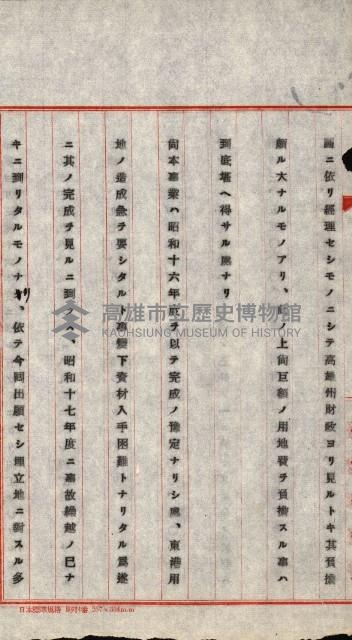 畫ニ依リ經理セシモノニシテ高雄州財政ヨリ見ルトキ其負擔
頗ル大ナルモノアリ、 ノ上尚巨額ノ用地費ヲ負擔スル事ハ
到底堪ヘ得サル處ナリ
尚本事業ハ昭和十六年度ヲ以テ完成ノ豫定ナリシ處、東港用
地ノ造成急ヲ要シタルト事變下資材入手困難トナリタル爲遂
ニ其ノ完成ヲ見ルニ到 、昭和十七年度ニ事故繰越ノ已ナ
キニ到リタルモノナリ、依テ今回出願セシ埋立地ニ對スル多
高雄市立歷史博物館
KAOHSIUNG MUSEUM OF HISTORY
日本標準規格 B列4番 257×364m.m